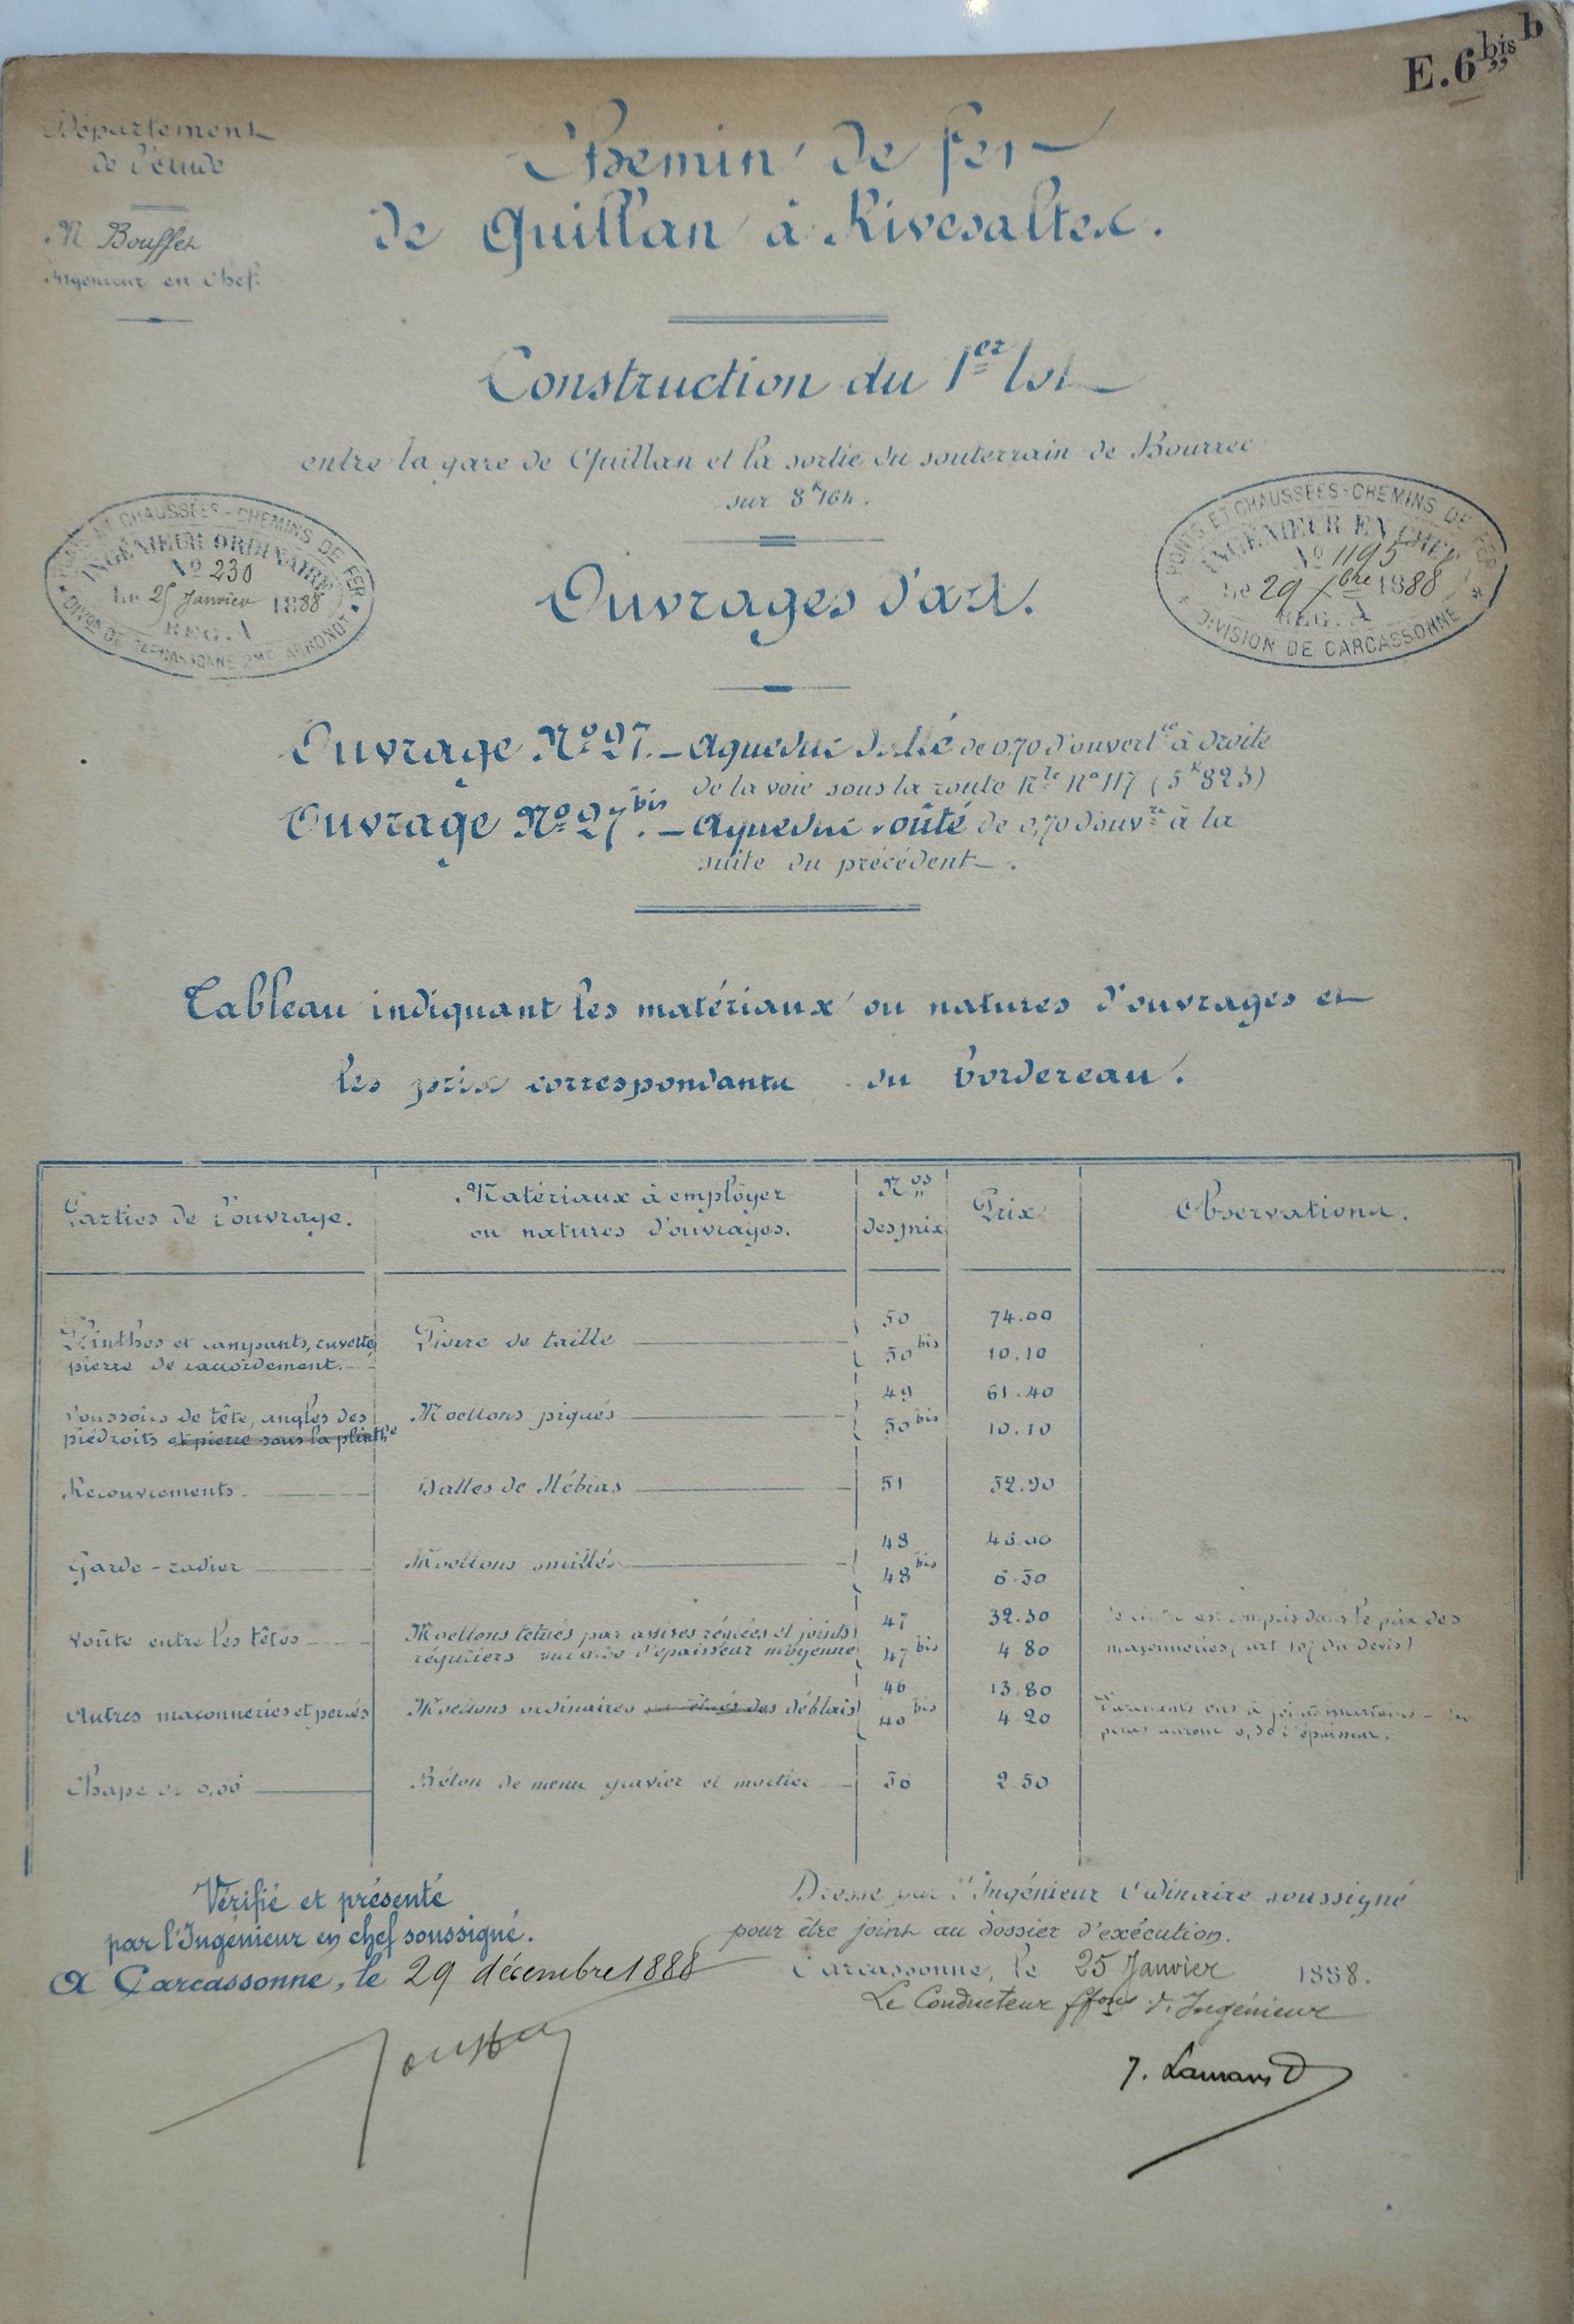 E.6 bis b
Département
de l'Aude
M Bouffet
Ingénieur en Chef.
Chemin de fer
de Quillan à Rivesaltes.
Construction du 1er lot
entre la gare de Quillan et la sortie du souterrain de Bourrec
sur 8k164.
PONTS ET CHAUSSÉES - CHEMINS DE FER
INGÉNIEUR ORDINAIRE
No 230
Le 25 Janvier 1888
REG. A
DIVon DE CARCASSONNE 2ME ARRONDT
PONTS ET CHAUSSÉES - CHEMINS DE FER
INGÉNIEUR EN CHEF
No 1195
Le 29 Xbre 1888
REG. A
DIVISION DE CARCASSONNE
Ouvrages d'art.
Ouvrage No 27. - Aqueduc dallé de 0,70 d'ouvertre à droite
de la voie sous la route Nle No 117 (5k823)
Ouvrage No 27 bis. - Aqueduc voûté de 0,70 d'ouvre à la
suite du précédent.
Tableau indiquant les matériaux ou natures d'ouvrages et
les prix correspondants du bordereau.
Parties de l'ouvrage.
Matériaux à employer
ou natures d'ouvrages.
Nos
des prix
Prix
Observations.
Plinthes et rampants, cuvette,
pierre de raccordement.
Pierre de taille
50
50 bis
74.00
10.10
Voussoirs de tête, angles des
piédroits et pierre sous la plinthe
Moellons piqués
49
50 bis
61.40
10.10
Recouvrements
Dalles de Nébias
51
52.90
Garde-radier
Moellons smillés
48
48 bis
Voûte entre les têtes
Moellons têtués par assises réglées et joints
réguliers suivant d'épaisseur moyenne
47
47 bis
32.30
4.80
Le cintre est compris dans le prix des
maçonneries (art 107 du Devis)
Autres maçonneries et perrés
Moellons ordinaires ou tirés des déblais
46
46 bis
13.80
4.20
Parements vus à joints incertains
perrés auront 0,30 d'épaisseur.
Chape de
Béton de menu gravier et mortier
56
2.50
Vérifié et présenté
par l'Ingénieur en chef soussigné.
A Carcassonne, le 29 décembre 1888
Dressé par l'Ingénieur Ordinaire soussigné
pour être joint au dossier d'exécution.
Carcassonne, le 25 Janvier 1888.
Le Conducteur ffons d'Ingénieur